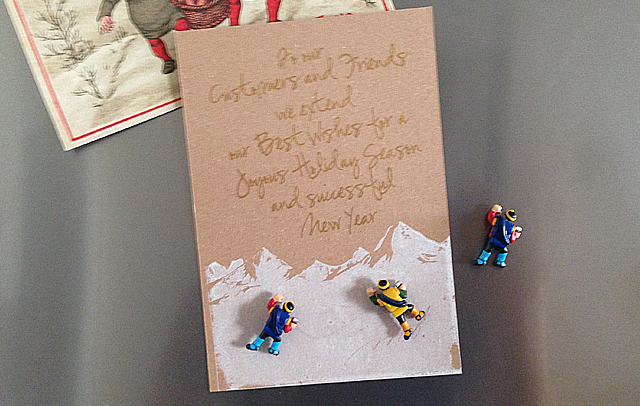 To our
Customers and Friends
we extend
our Best Wishes for a
Joyous Holiday Season
and successful
New Year